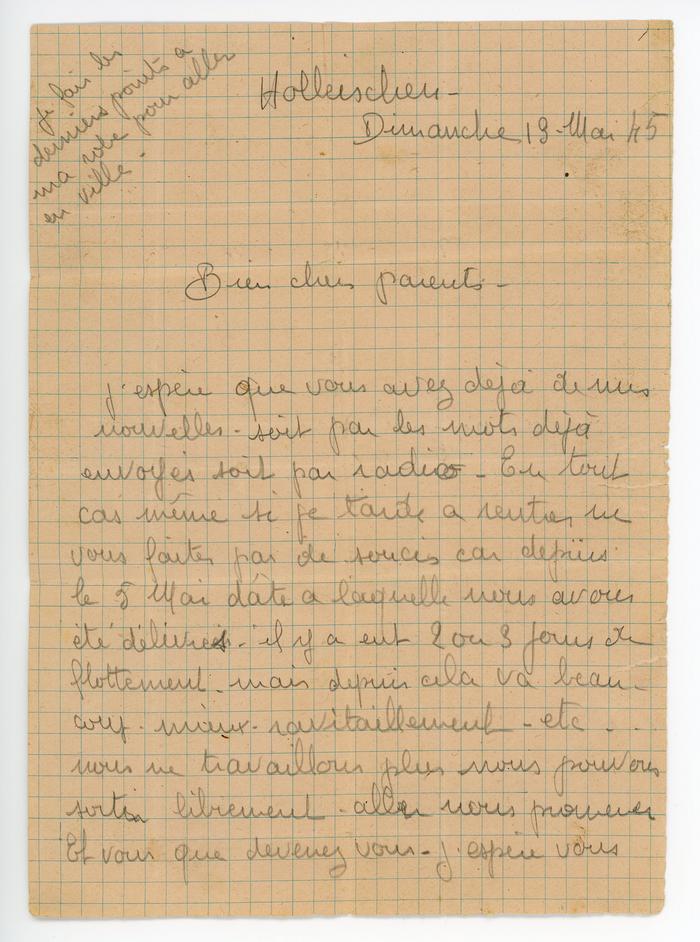 Je fais les
derniers points à
ma robe pour aller
en ville -
Holleischen -
Dimanche 13 - Mai 45
Bien chers parents -
j'espère que vous avez déjà de mes
nouvelles - soit par les mots déjà
envoyés soit par radio - En tout
cas même si je tarde a rentrer ne
vous faites pas de soucis car depuis
le 5 Mai dâte a laquelle nous avons
été délivrés - il y a eut 2 ou 3 jours de
flottement - mais depuis cela va beau-
coup - mieux - ravitaillement - etc ...
nous ne travaillons plus nous pouvons
sortir librement - aller nous promener
Et vous que devenez vous - j'espère vous